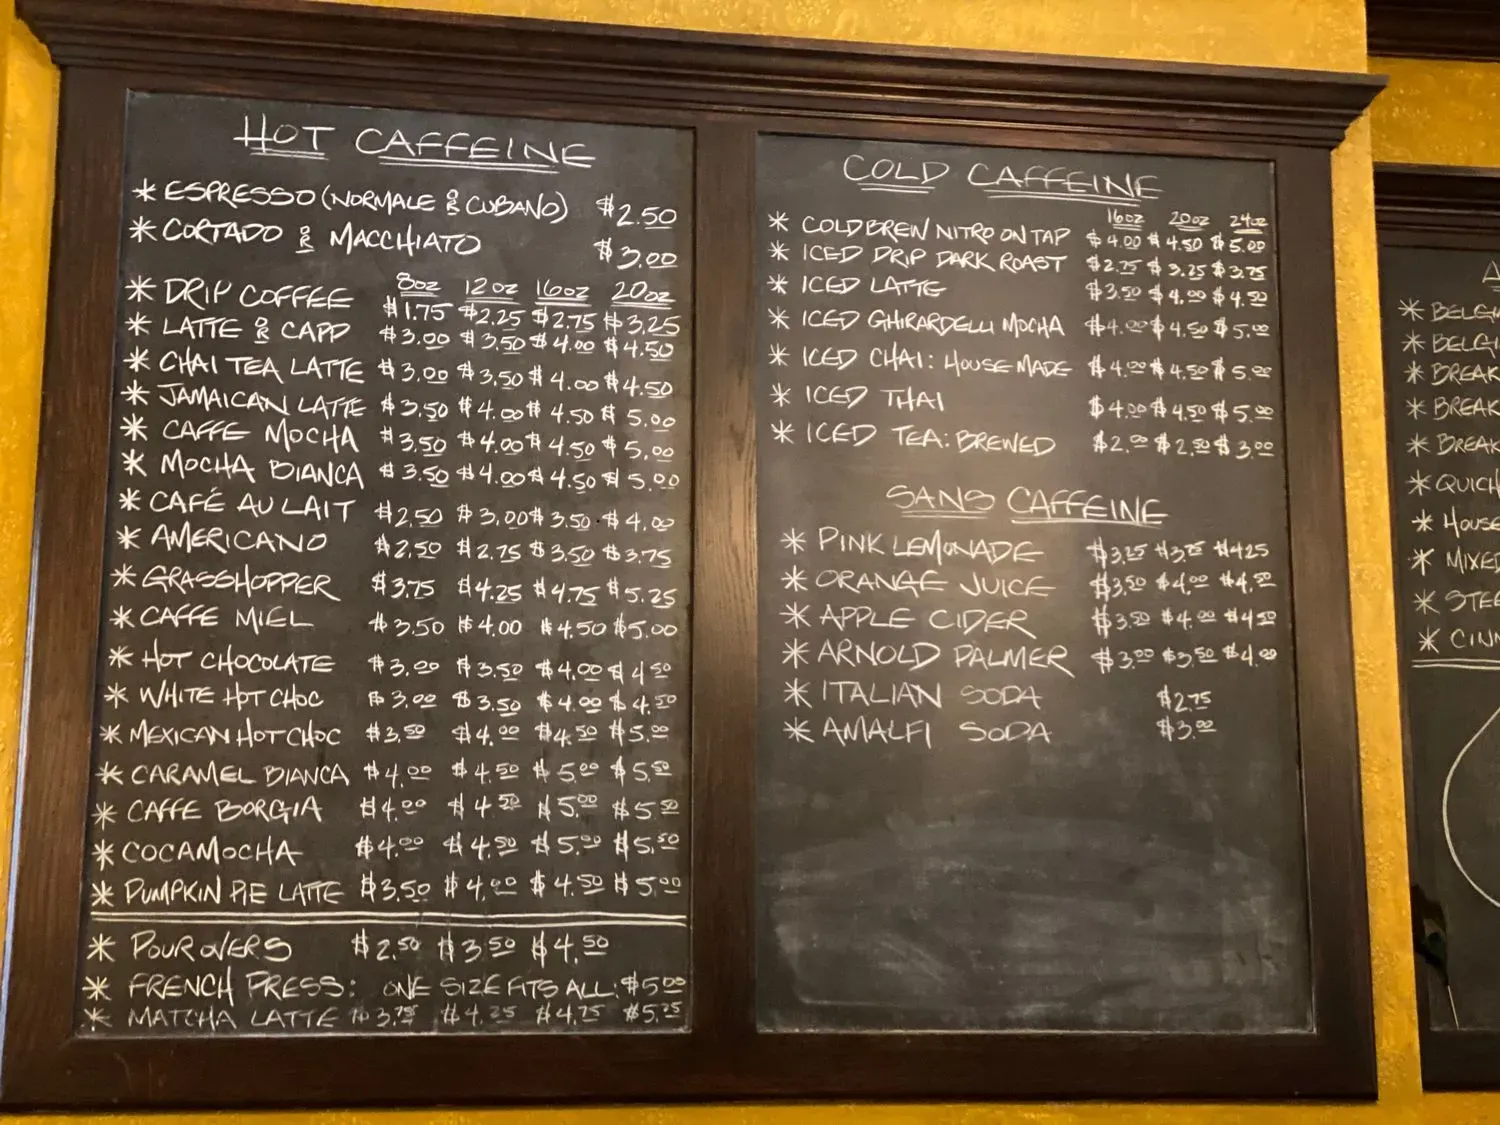 HOT CAFFEINE
* ESPRESSO (NORMALE OR CUBANO) $2.50
* CORTADO OR MACCHIATO $3.00
8oz 12oz 16oz 20oz
* DRIP COFFEE $1.75 $2.25 $2.75 $3.25
* LATTE OR CAPP $3.00 $3.50 $4.00 $4.50
* CHAI TEA LATTE $3.00 $3.50 $4.00 $4.50
* JAMAICAN LATTE $3.50 $4.00 $4.50 $5.00
* CAFFE MOCHA $3.50 $4.00 $4.50 $5.00
* MOCHA BIANCA $3.50 $4.00 $4.50 $5.00
* CAFÉ AU LAIT $2.50 $3.00 $3.50 $4.00
* AMERICANO $2.50 $2.75 $3.50 $3.75
* GRASSHOPPER $3.75 $4.25 $4.75 $5.25
* CAFFE MIEL $3.50 $4.00 $4.50 $5.00
* HOT CHOCOLATE $3.00 $3.50 $4.00 $4.50
* WHITE HOT CHOC $3.00 $3.50 $4.00 $4.50
* MEXICAN HOT CHOC $3.50 $4.00 $4.50 $5.00
* CARAMEL BIANCA $4.00 $4.50 $5.00 $5.50
* CAFFE BORGIA $4.00 $4.50 $5.00 $5.50
* COCAMOCHA $4.00 $4.50 $5.00 $5.50
* PUMPKIN PIE LATTE $3.50 $4.00 $4.50 $5.00
* POUR OVERS $2.50 $3.50 $4.50
* FRENCH PRESS: ONE SIZE FITS ALL: $5.00
* MATCHA LATTE $3.75 $4.25 $4.75 $5.25
COLD CAFFEINE
16oz 20oz 24oz
* COLD BREW NITRO ON TAP $4.00 $4.50 $5.00
* ICED DRIP DARK ROAST $2.75 $3.25 $3.75
* ICED LATTE $3.50 $4.00 $4.50
* ICED GHIRARDELLI MOCHA $4.00 $4.50 $5.00
* ICED CHAI: HOUSE MADE $4.00 $4.50 $5.00
* ICED THAI $4.00 $4.50 $5.00
* ICED TEA: BREWED $2.00 $2.50 $3.00
SANS CAFFEINE
* PINK LEMONADE $3.25 $3.75 $4.25
* ORANGE JUICE $3.50 $4.00 $4.50
* APPLE CIDER $3.50 $4.00 $4.50
* ARNOLD PALMER $3.00 $3.50 $4.00
* ITALIAN SODA $2.75
* AMALFI SODA $3.00
* BELGI
* BELGI
* BREAK
* BREAK
* BREAK
* QUICH
* HOUSE
* MIXED
* STEE
* CINN